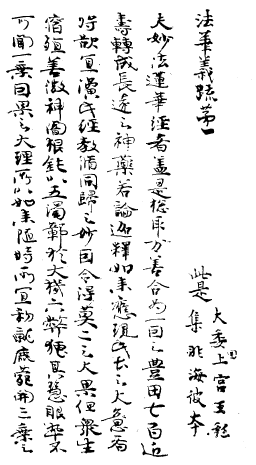 法華義疏第一
此是
大委国上宮王私
集非海彼本
夫妙法蓮華経者蓋是惣取万善合為一因之豊田七百近
壽轉成長遠之神藥若論迦釋如来應現此土之大意者
将欲宜演此経教脩同歸之妙因令得莫二之大果但衆生
宿殖善微神闇根鈍以五濁鄣於大機六弊掩其慧眼卒不
可聞一乗因果之大理所以如来随時所宜初就鹿菀開三乗之